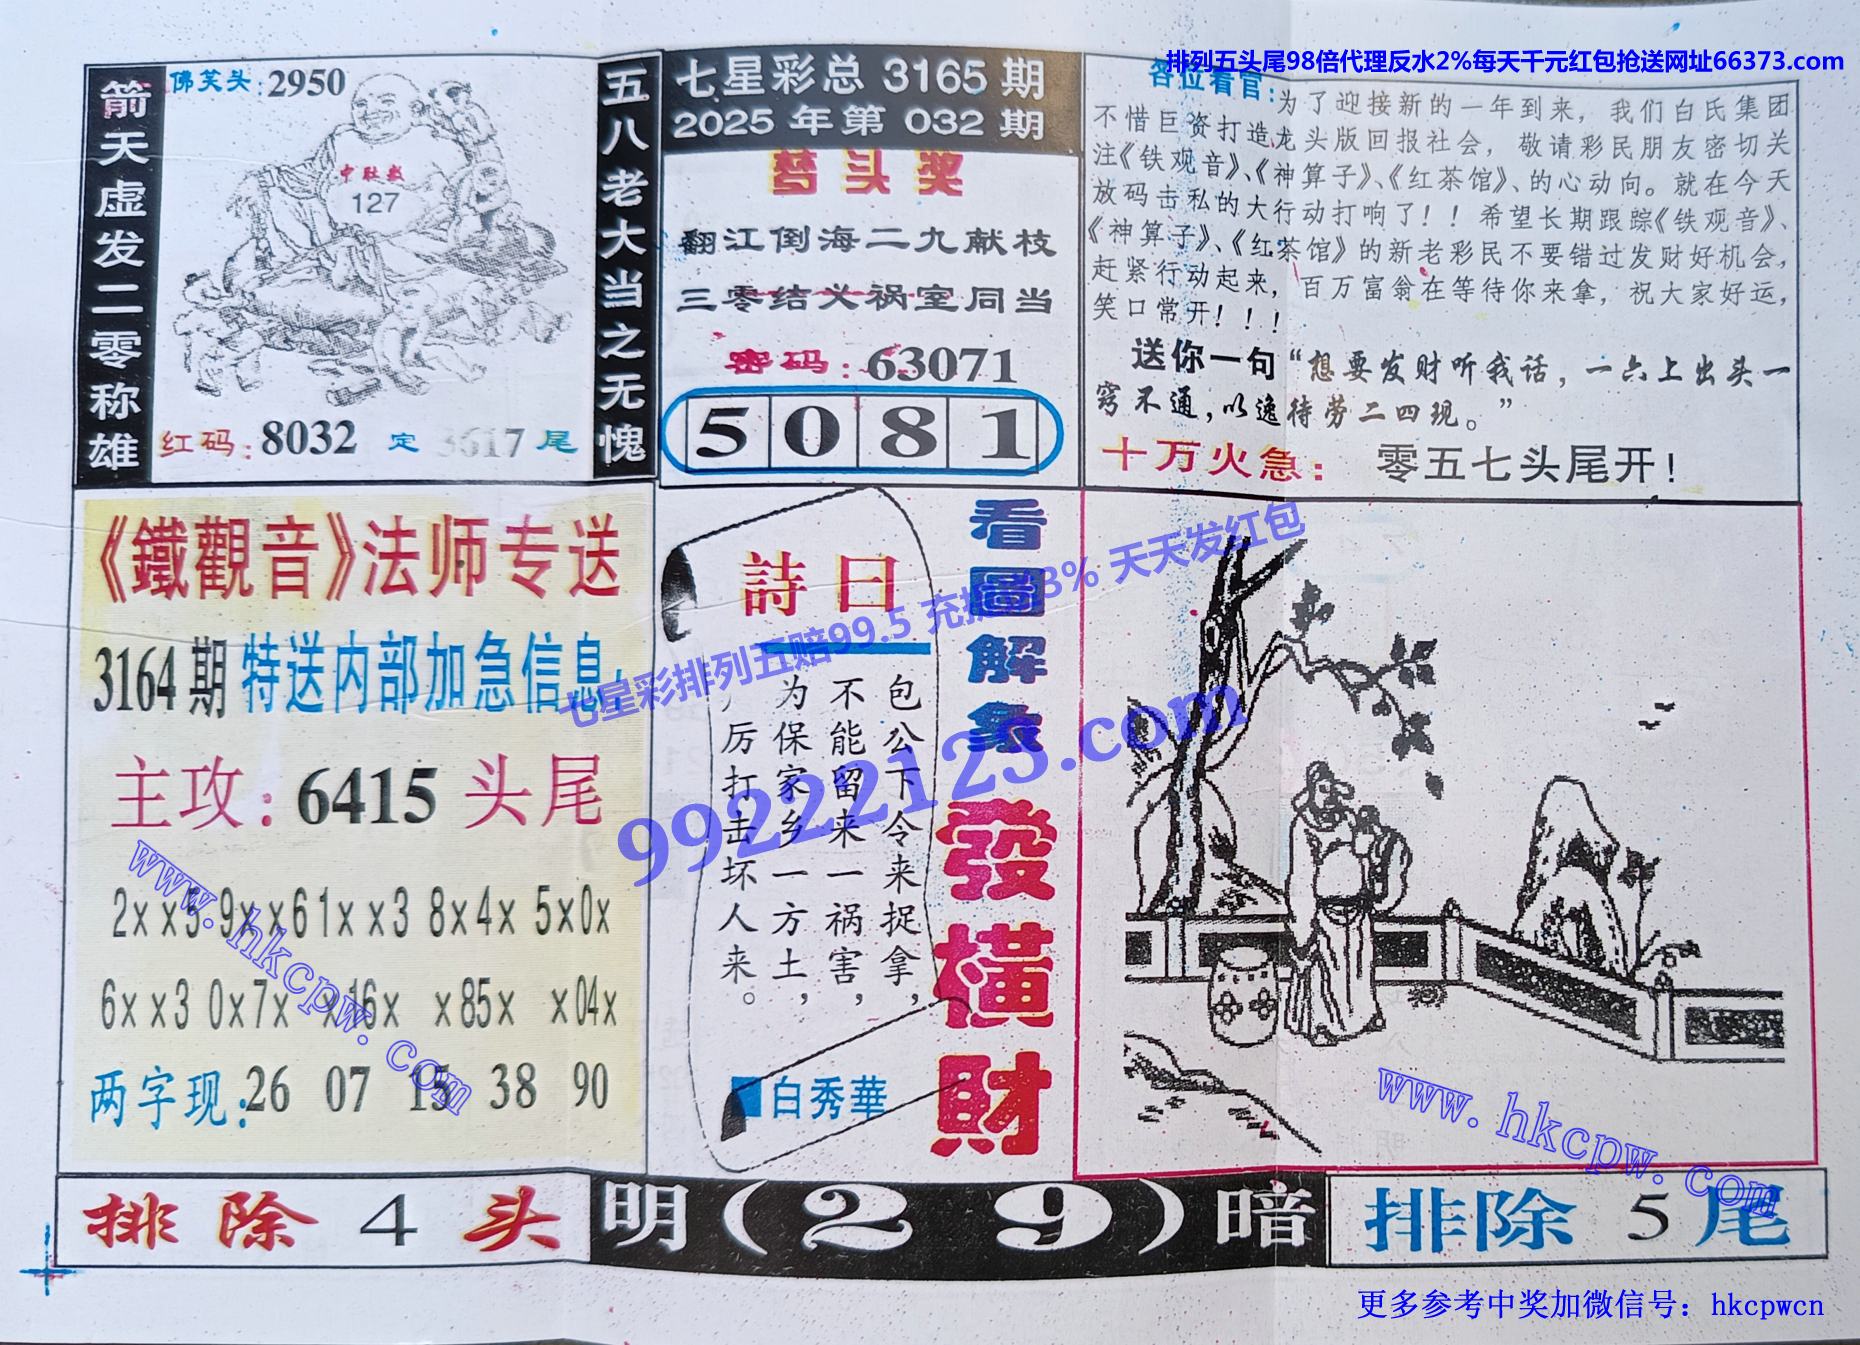 排列五头尾98倍代理反水2%每天千元红包抢送网址66373.com
箭天虚发二零称雄
佛笑头:2950
中肚数
127
红码:8032 定 3617 尾
五八老大当之无愧
七星彩总 3165 期
2025 年第 032 期
梦头奖
翻江倒海二九献枝
三零结义祸室同当
密码:63071
5 0 8 1
各位看官:为了迎接新的一年到来，我们白氏集团
不惜巨资打造龙头版回报社会，敬请彩民朋友密切关
注《铁观音》、《神算子》、《红茶馆》、的心动向。就在今天
放码击私的大行动打响了！！希望长期跟踪《铁观音》、
《神算子》、《红茶馆》的新老彩民不要错过发财好机会，
赶紧行动起来，百万富翁在等待你来拿，祝大家好运，
笑口常开！！！
送你一句“想要发财听我话，一六上出头一
窍不通，以逸待劳二四现。”
十万火急：零五七头尾开！
《鐵觀音》法师专送
3164期 特送内部加急信息，
主攻：6415 头尾
2××5 9××6 1××3 8×4× 5×0×
6××3 0×7× ×16× ×85× ×04×
两字现：26 07 15 38 90
詩曰
包公下令来捉拿，
不能留来一祸害，
为保家乡一方土，
厉打击坏人来。
白秀華
看圖解象
發橫財
七星彩排列五赔99.5 充 3% 天天发红包
99222123.com
www.hkcpw.com
www.hkcpw.com
排除 4 头
明(29)暗
排除 5 尾
更多参考中奖加微信号：hkcpwcn